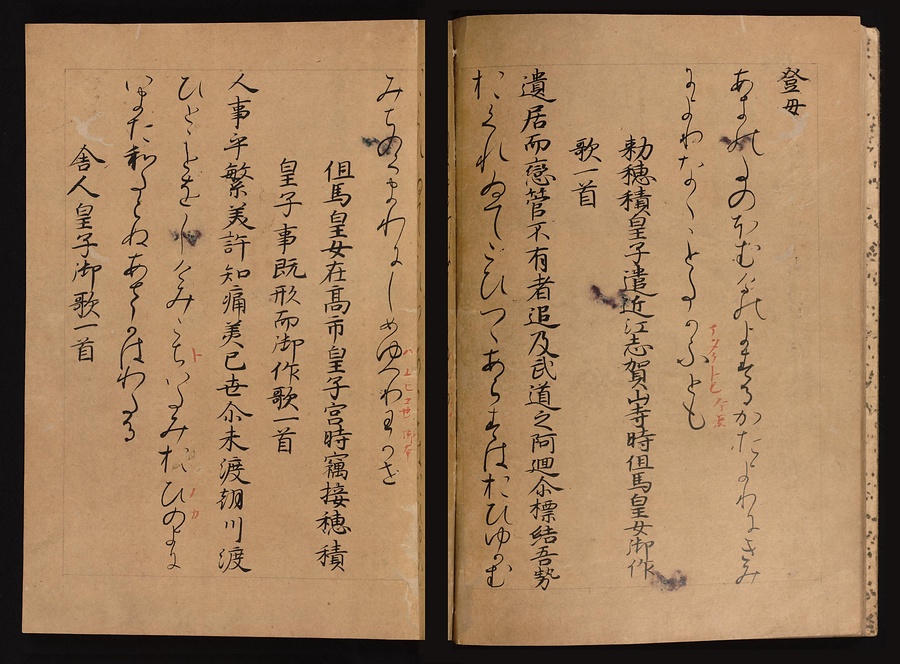 登毋
あきのたのほむけのよするかたよりにきみ
によりなゝことたかふとも
勅穂積皇子遣近江志賀山寺時但馬皇女御作
歌一首
遺居而戀管不有者追及武道之阿廻尒標結吾勢
おくれゐてこひつゝあらすはおひゆかむ
みちのくまわにしめゆへわかせ
但馬皇女在高市皇子宮時竊接穂積
皇子事既形而御作歌一首
人事乎繁美許知痛美已世尒未渡朝川渡
ひとことをしけみこちいたみおひのよに
いまたわたらぬあさかはわたる
舎人皇子御歌一首